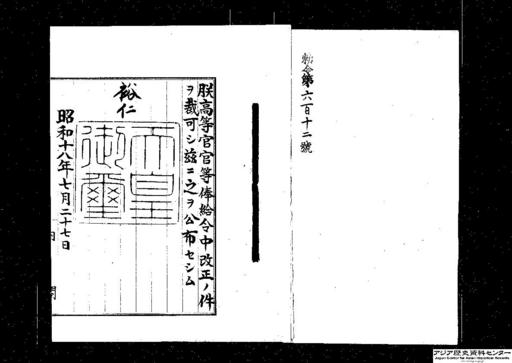 勅令第六百十二號
朕高等官官等俸給令中改正ノ件
ヲ裁可シ茲ニ之ヲ公布セシム
裕仁
天皇
御璽
昭和十八年七月二十七日
内閣
アジア歴史資料センター
Japan Center for Asian Historical Records